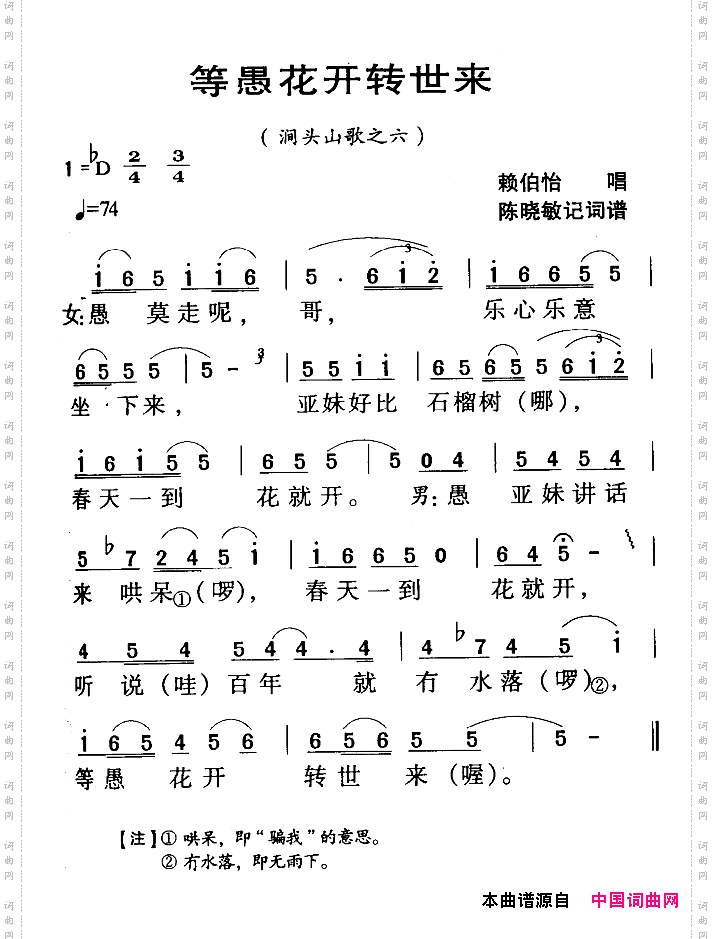 等愚花开转世来
（涧头山歌之六）
1=♭D 2/4 3/4
赖伯怡 唱
♩=74
陈晓敏记词谱
i 6 5 i i i 6 | 5 · 6 i 2 | i 6 6 5 5 |
女:愚 莫走呢， 哥， 乐心乐意
6 5 5 5 5 | 5 - 3 | 5 5 i i | 6 5 6 5 5 6 i 2 |
坐 · 下来， 亚妹好比 石榴树（哪），
i 6 i 5 5 | 6 5 5 | 5 0 4 | 5 4 5 4 |
春天一到 花就开。 男:愚 亚妹讲话
5 ♭7 2 4 5 i | i 6 6 5 0 | 6 4 5 - |
来 哄呆①（啰）， 春天一到 花就开，
4 5 4 5 4 4 · 4 | 4 ♭7 4 5 i |
听说（哇）百年 就 冇 水落（啰）②，
i 6 5 4 5 6 | 6 5 6 5 5 | 5 - ‖
等愚 花开 转世 来（喔）。
【注】① 哄呆，即“骗我”的意思。
② 冇水落，即无雨下。
本曲谱源自 中国词曲网